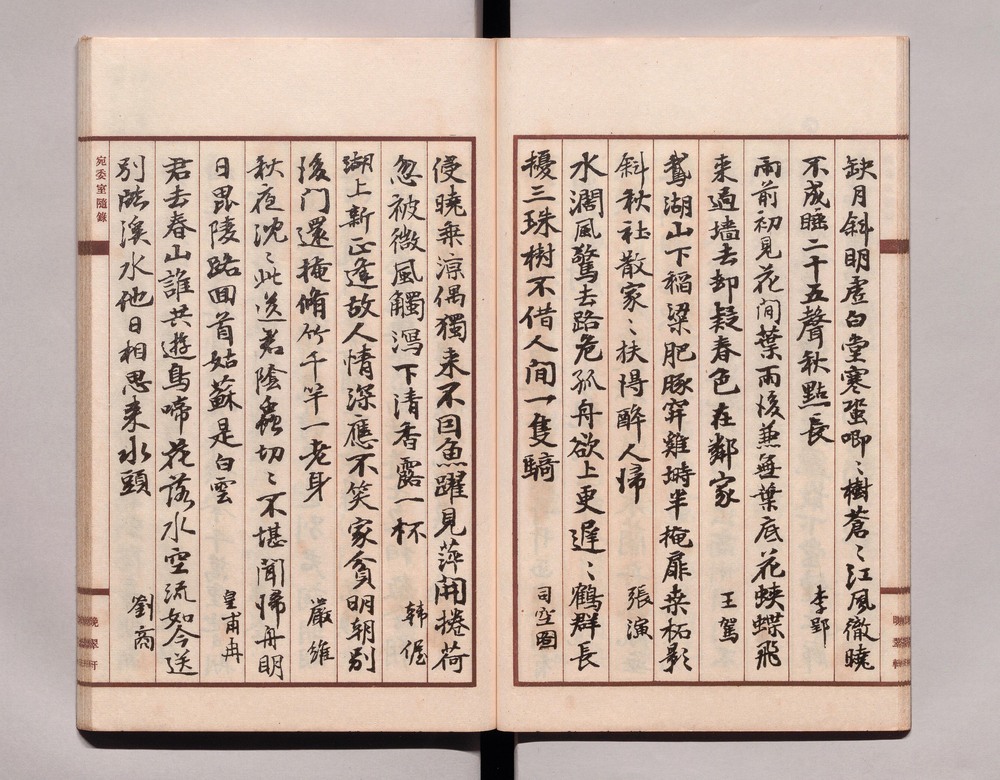 缺月斜明虛白堂寒蛩唧〻樹蒼〻江風徹曉
不成睡二十五聲秋點長
李郢
雨前初見花間葉雨後兼無葉底花蛺蝶飛
来過墻去却疑春色在鄰家
王駕
鵞湖山下稻粱肥豚穽雞塒半掩扉桑柘影
斜秋社散家〻扶得醉人歸
張演
水濶風驚去路危孤舟欲上更遲〻鶴群長
擾三珠樹不借人間一隻騎
司空圖
侵曉乘涼偶獨来不因魚躍見萍開捲荷
忽被微風觸瀉下清香露一杯
韩偓
湖上新正逢故人情深應不笑家貧明朝別
後门還掩脩竹千竿一老身
嚴維
秋夜沈〻此送君陰蟲切〻不堪聞歸舟明
日毘陵路囬首姑蘇是白雲
皇甫冉
君去春山誰共遊鳥啼花落水空流如今送
別臨溪水他日相思来水頭
劉商
宛委室隨錄
曉翠軒